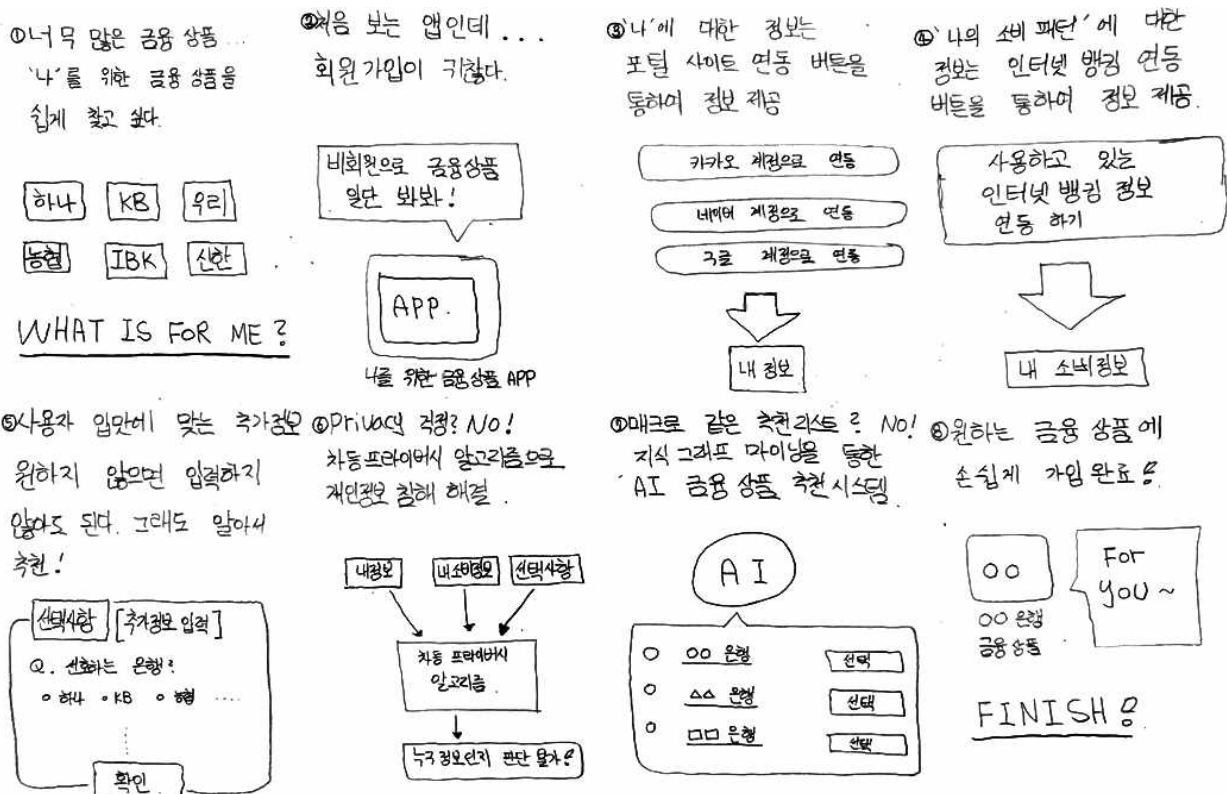 ①너무 많은 금융 상품...
'나'를 위한 금융 상품을
쉽게 찾고 싶다.
하나
KB
우리
농협
IBK
신한
WHAT IS FOR ME?
②처음 보는 앱인데...
회원가입이 귀찮다.
비회원으로 금융상품
일단 봐봐!
APP.
나를 위한 금융상품 APP
③'나'에 대한 정보는
포털 사이트 연동 버튼을
통하여 정보 제공
카카오 계정으로 연동
네이버 계정으로 연동
구글 계정으로 연동
내 정보
④'나의 소비 패턴'에 대한
정보는 인터넷 뱅킹 연동
버튼을 통하여 정보 제공.
사용하고 있는
인터넷 뱅킹 정보
연동 하기
내 소비정보
⑤사용자 입맛에 맞는 추가정보
원하지 않으면 입력하지
않아도 된다. 그래도 알아서
추천!
선택사항 [추가정보 입력]
Q. 선호하는 은행?
○ 하나 ○ KB ○ 농협 ....
확인
⑥Privacy 걱정? No!
차등프라이버시 알고리즘으로
개인정보 침해 해결.
내정보
내소비정보
선택사항
차등 프라이버시
알고리즘
누구 정보인지 판단 불가!
⑦매크로 같은 추천리스트? No!
지식 그래프 마이닝을 통한
AI 금융 상품 추천시스템.
AI
○ ○○ 은행 선택
○ △△ 은행 선택
○ □□ 은행 선택
⑧원하는 금융 상품에
손쉽게 가입 완료!
○○
○○ 은행
금융상품
For
you ~
FINISH!